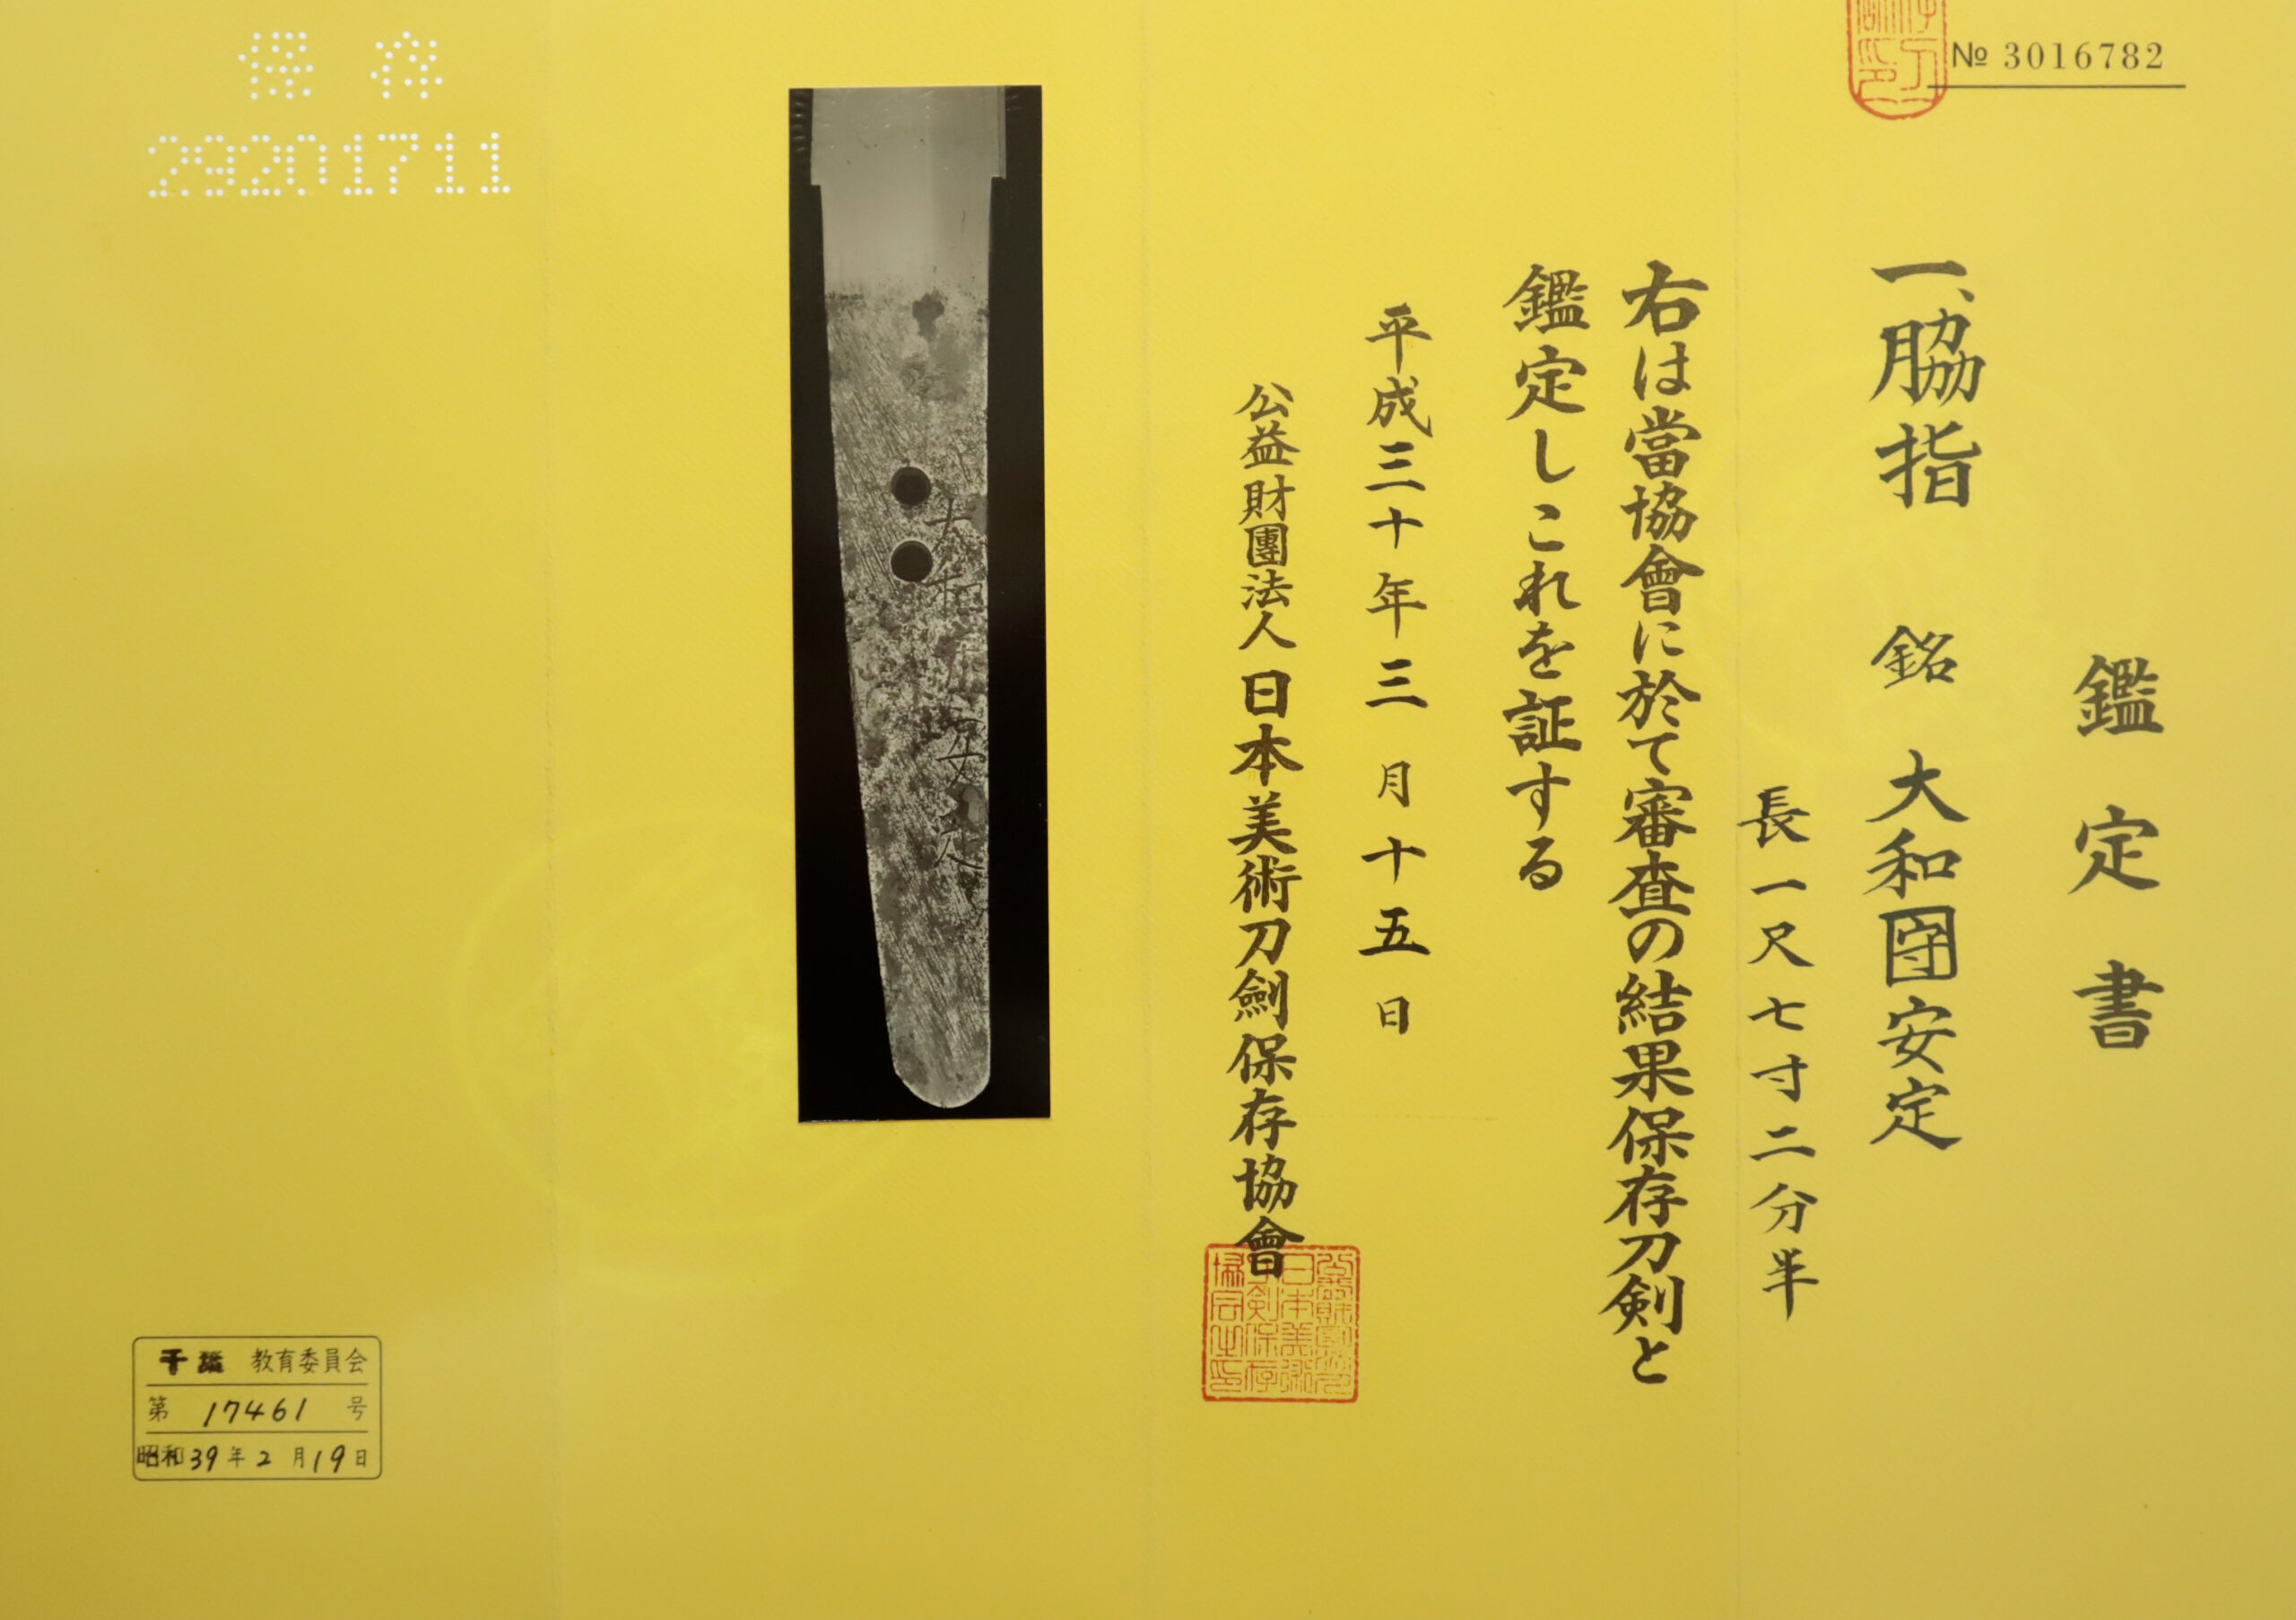 № 3016782
鑑定書
一、脇指 銘 大和守安定
長一尺七寸二分半
右は當協會に於て審査の結果保存刀剣と
鑑定しこれを証する
平成三十年三月十五日
公益財團法人日本美術刀劍保存協會
大和守安定
保存
29201711
千葉 教育委員会
第 17461 号
昭和39年2月19日